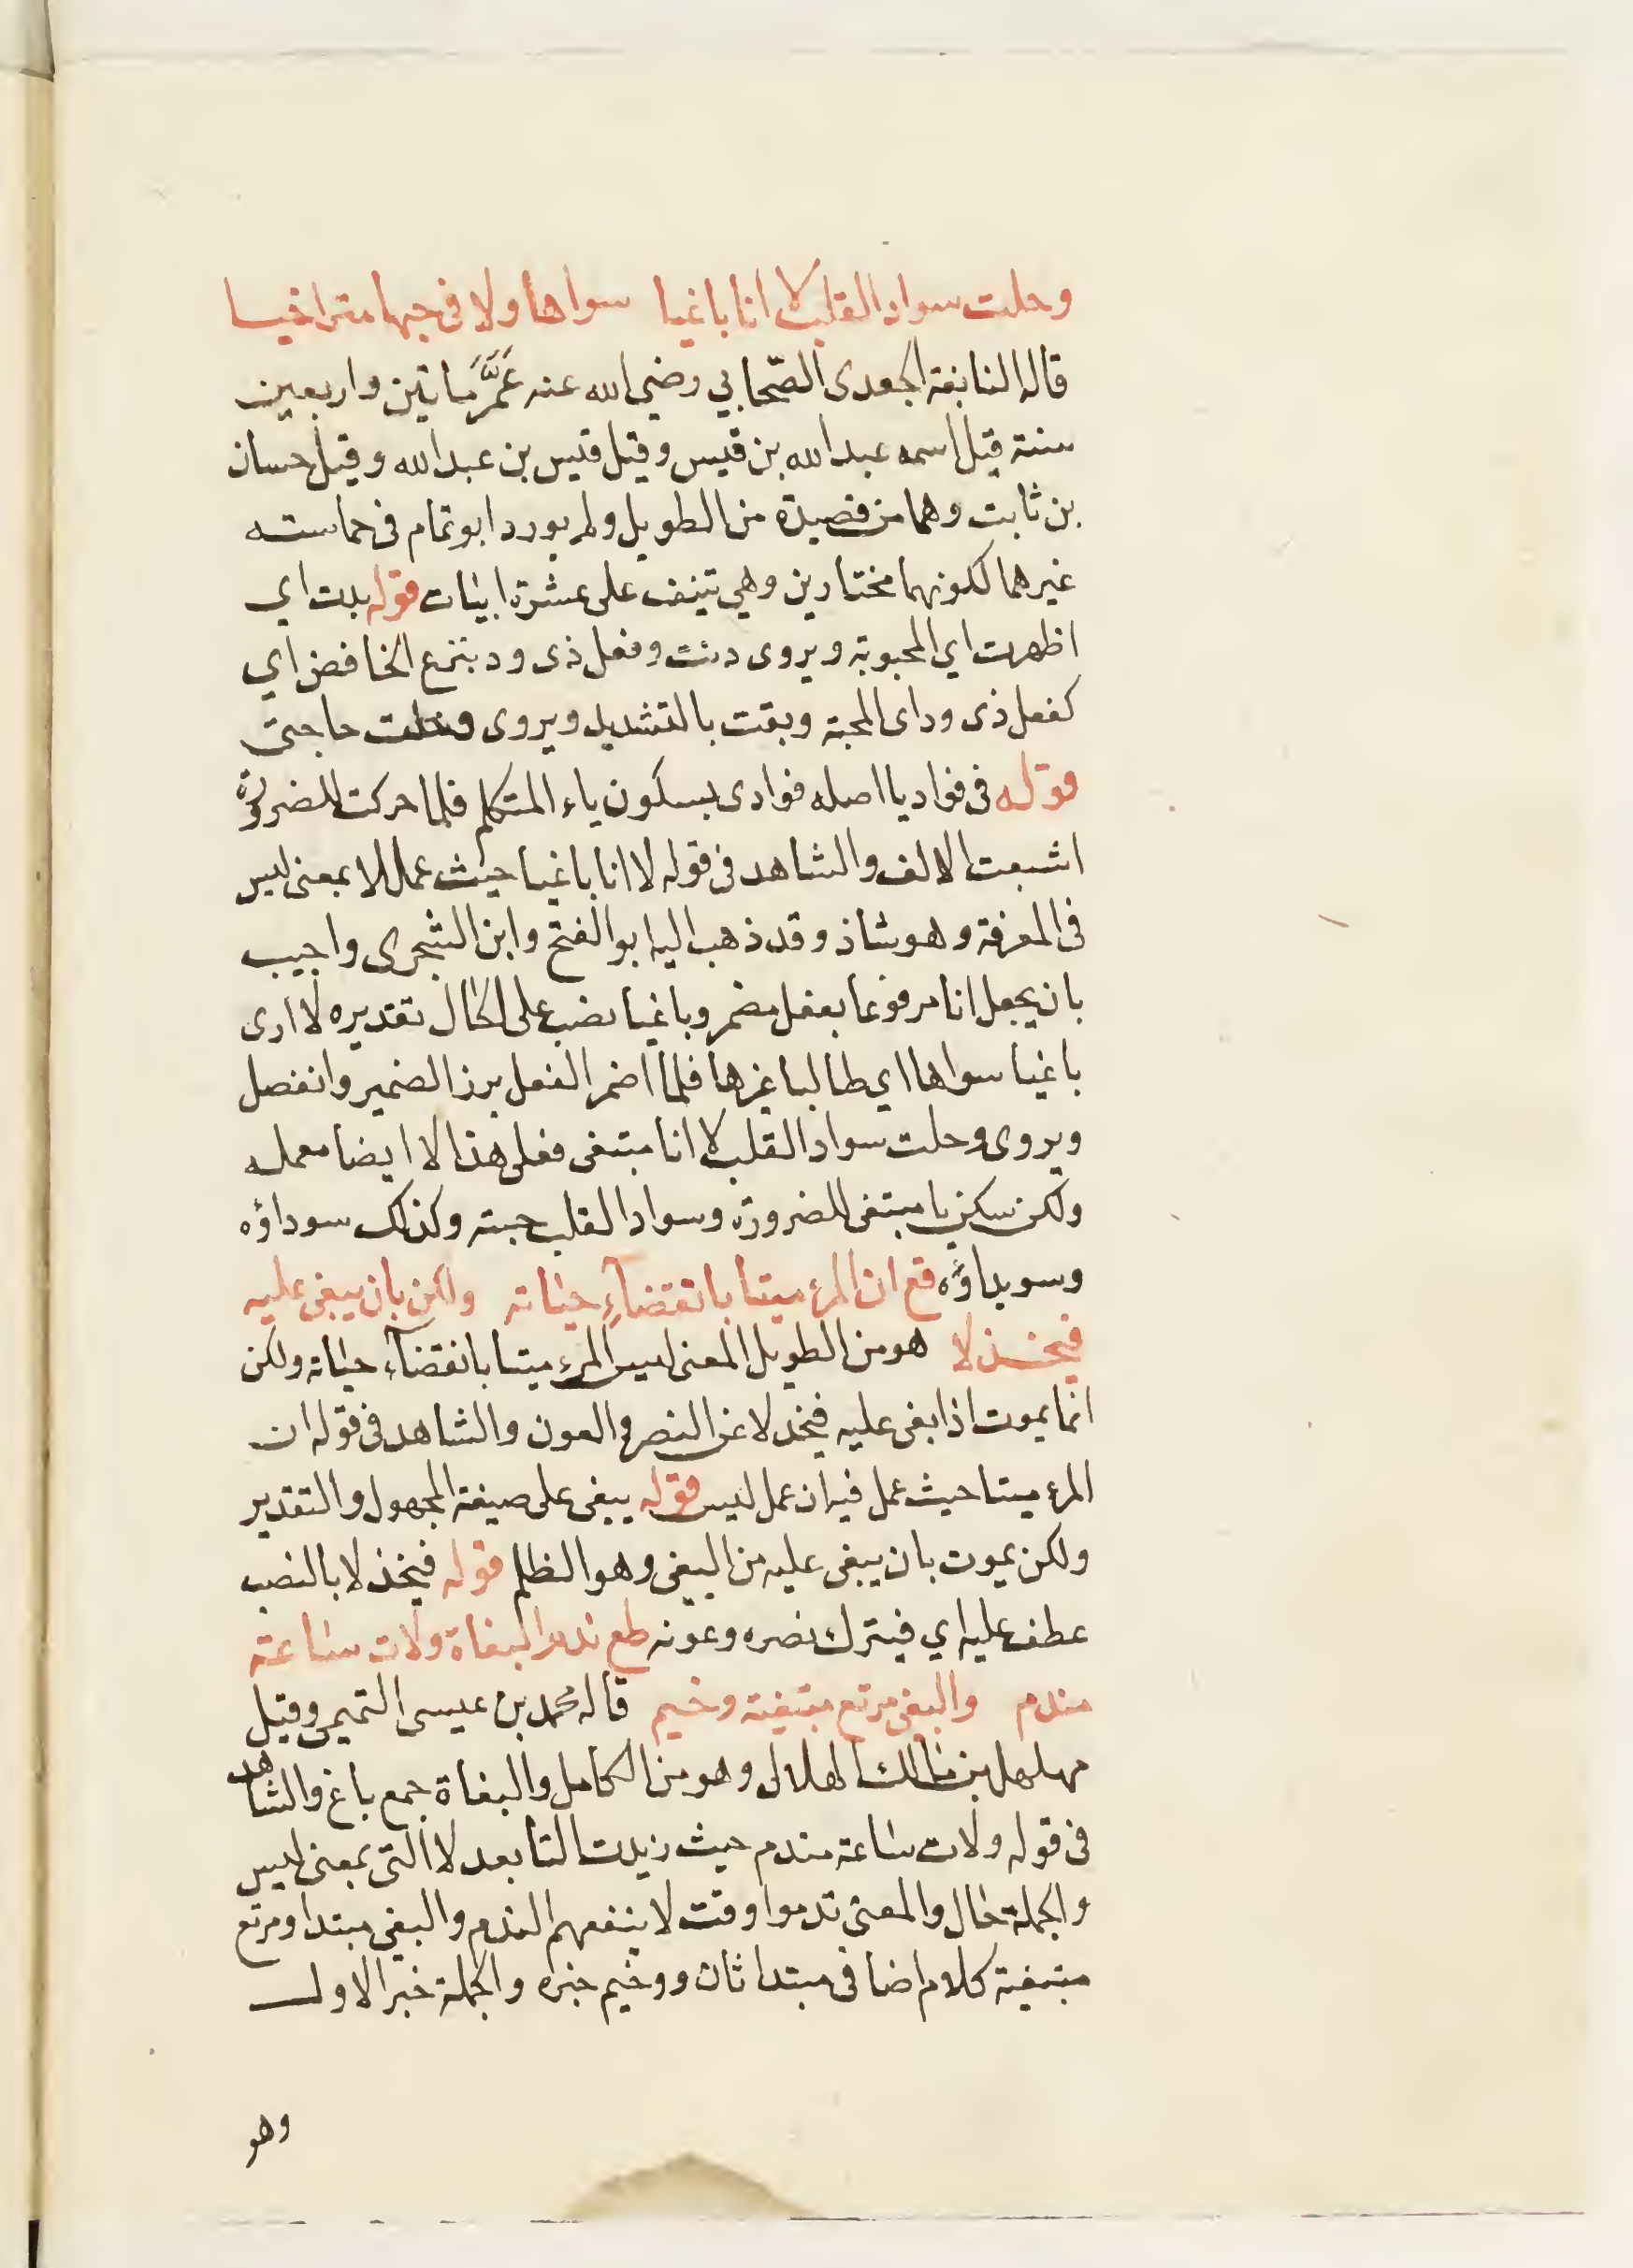 وحلت سواد القلب لا انا باغيا سواها ولا في حبها متراخيا
قاله النابغة الجعدى الصّحابي رضي الله عنه عَمَّرَ مائتين واربعين
سنة قيل اسمه عبد الله بن قيس وقيل قيس بن عبد الله وقيل حسان
بن ثابت وهما من قصيدة من الطويل ولم يورد ابو تمام في حماسته
غيرهما لكونهما مختارين وهي تنيف على عشرة ابيات قوله بدت اي
اظهرت اي المحبوبة ويروى دنت وفعل ذى ود بنزع الخافض اي
كفعل ذى ود اى المحبة وبقت بالتشديد ويروى وخلت حاجتى
قوله في فواديا اصله فوادى بسكون ياء المتكلم فلما حركت للضرورة
اشبعت الالف والشاهد في قوله لا انا باغيا حيث عمل لا بمعنى ليس
في المعرفة وهو شاذ وقد ذهب اليه ابو الفتح وابن الشجرى واجيب
بان يجعل انا مرفوعا بفعل مضمر وباغيا نصب على الحال تقديره لا ارى
باغيا سواها اي طالبا غيرها فلما اضمر الفعل برز الضمير وانفصل
ويروى وحلت سواد القلب لا انا مبتغى فعلى هذا لا ايضا معمله
ولكن سكن يا مبتغى للضرورة وسواد القلب حبته وكذلك سوداؤه
وسويداؤه قع ان المرء ميتا بانقضآءِ حياته ولكن بان يبغى عليه
فيخذلا هو من الطويل المعنى ليس المرء ميتا بانقضآء حياته ولكن
انما يموت اذا بغى عليه فيخذلا عن النصر والعون والشاهد في قوله ان
المرء ميتا حيث عمل فيه ان عمل ليس قوله يبغى على صيغة المجهول والتقدير
ولكن يموت بان يبغى عليه من البغي وهو الظلم قوله فيخذلا بالنصب
عطف عليه اي فيترك نصره وعونه طع ندم البغاة ولات ساعة
مندم والبغى مرتع مبتغيه وخيم قاله محمد بن عيسى التميمي وقيل
مهلهل بن مالك الهلالى وهو من الكامل والبغاة جمع باغ والشاهد
في قوله ولات ساعة مندم حيث زيدت التا بعد لا التى بمعنى ليس
والجملة حال والمعنى ندموا وقت لا ينفعهم الندم والبغى مبتدا ومرتع
مبتغيه كلام اضافى مبتدا ثان ووخيم خبره والجملة خبر الاول
وهو